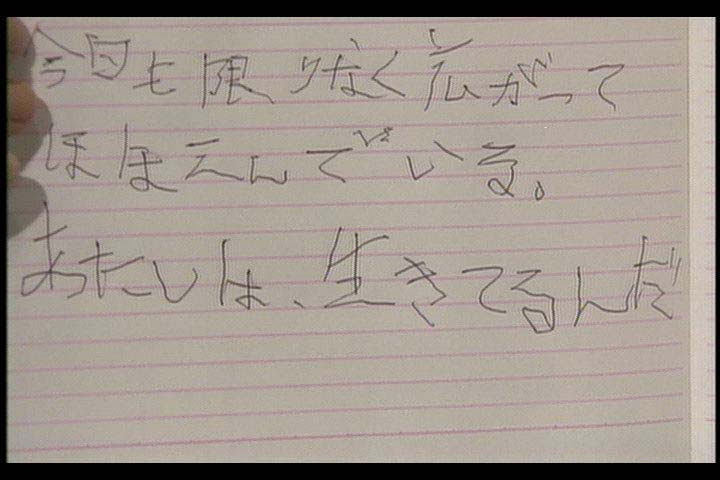 今日も限りなく広がって
ほほえんでいる。
あたしは、生きてるんだ